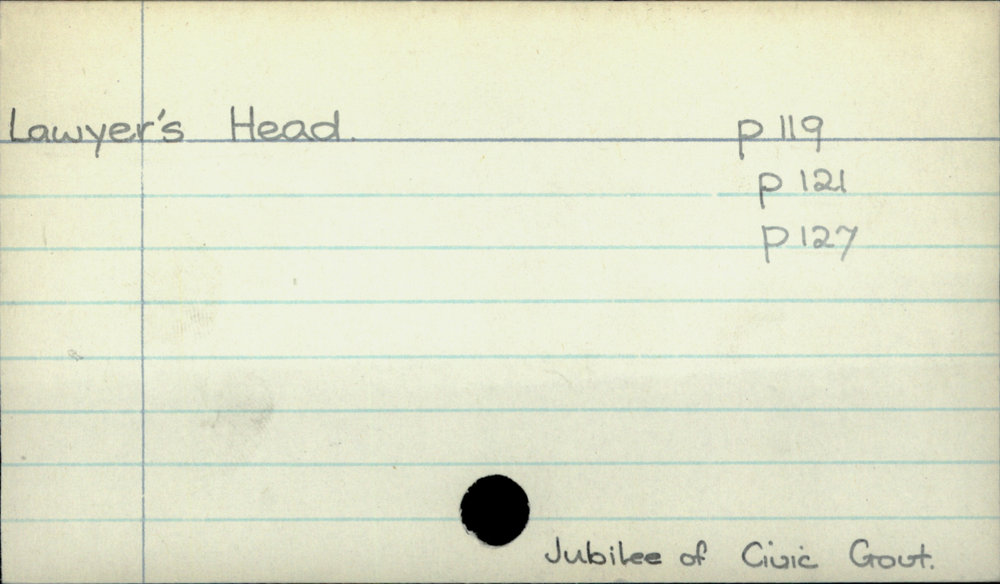 Lawyer's Head. p 119
p 121
p 127
Jubilee of Civic Govt.